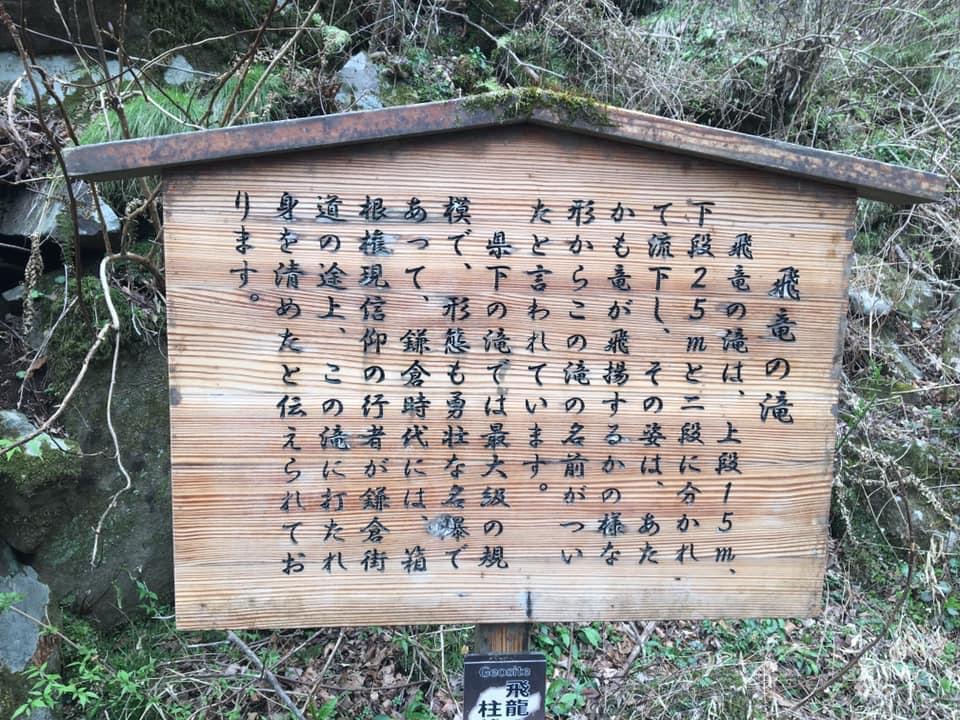 飛竜の滝
飛竜の滝は、上段15m、
下段25mと二段に分かれ
て流下し、その姿は、あた
かも竜が飛揚するかの様な
形からこの滝の名前がつい
たと言われています。
県下の滝では最大級の規
模で、形態も勇壮な名瀑で
あって、鎌倉時代には、箱
根権現信仰の行者が鎌倉街
道の途上、この滝に打たれ
身を清めたと伝えられてお
ります。
Geosite
飛龍
柱